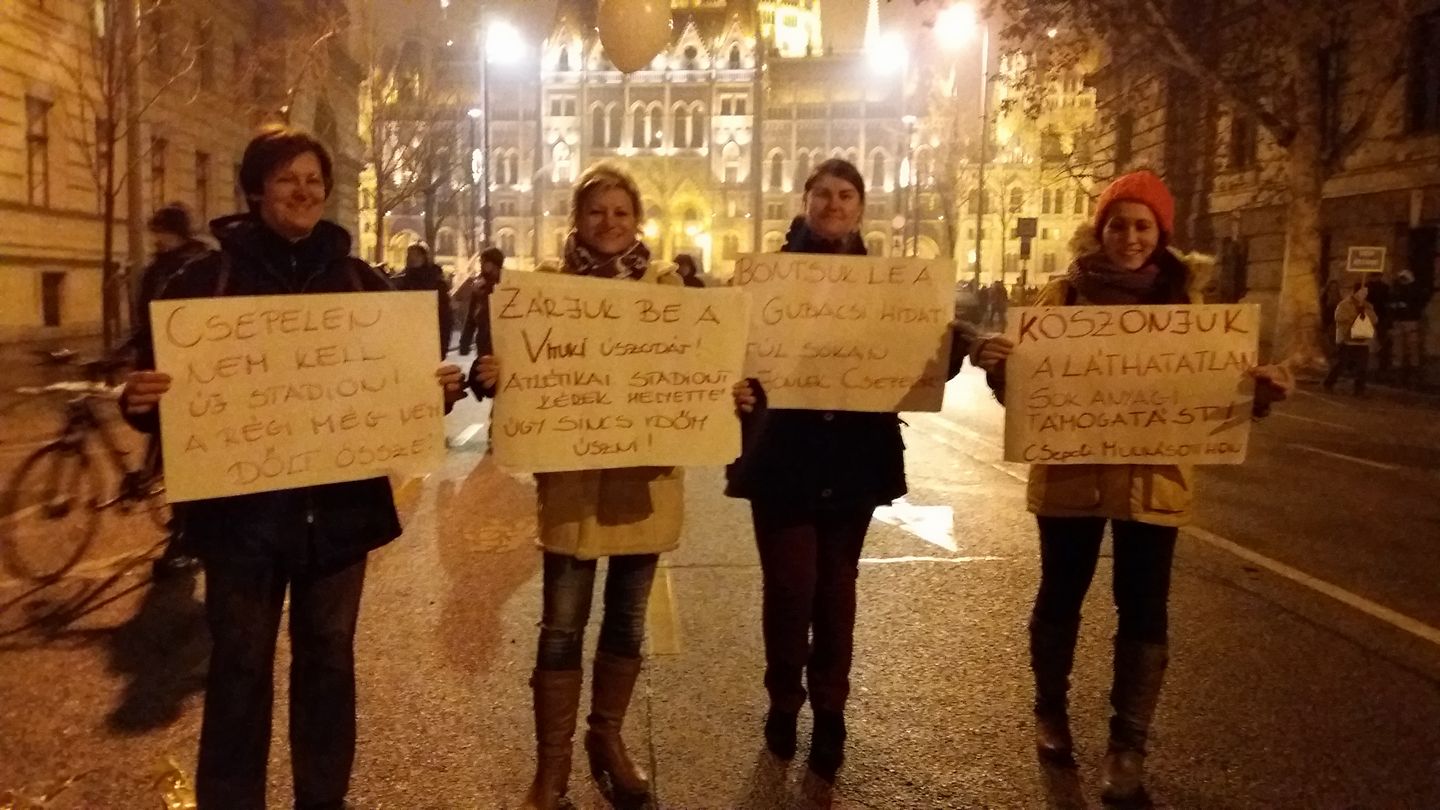 CSEPELEN
NEM KELL
ÚJ STADION!
A RÉGI MÉG NEM
DŐLT ÖSSZE!
ZÁRJUK BE A
VITUKI USZODÁT!
ATLÉTIKAI STADIONT
KÉREK HELYETTE!
ÚGY SINCS IDŐM
ÚSZNI!
BONTSUK LE A
GUBACSI HIDAT
TÚL SOKAN
CSEPELRE
KÖSZÖNJÜK
A LÁTHATATLAN
SOK ANYAGI
TÁMOGATÁST!
CSEPELI MUNKÁSOTTHON